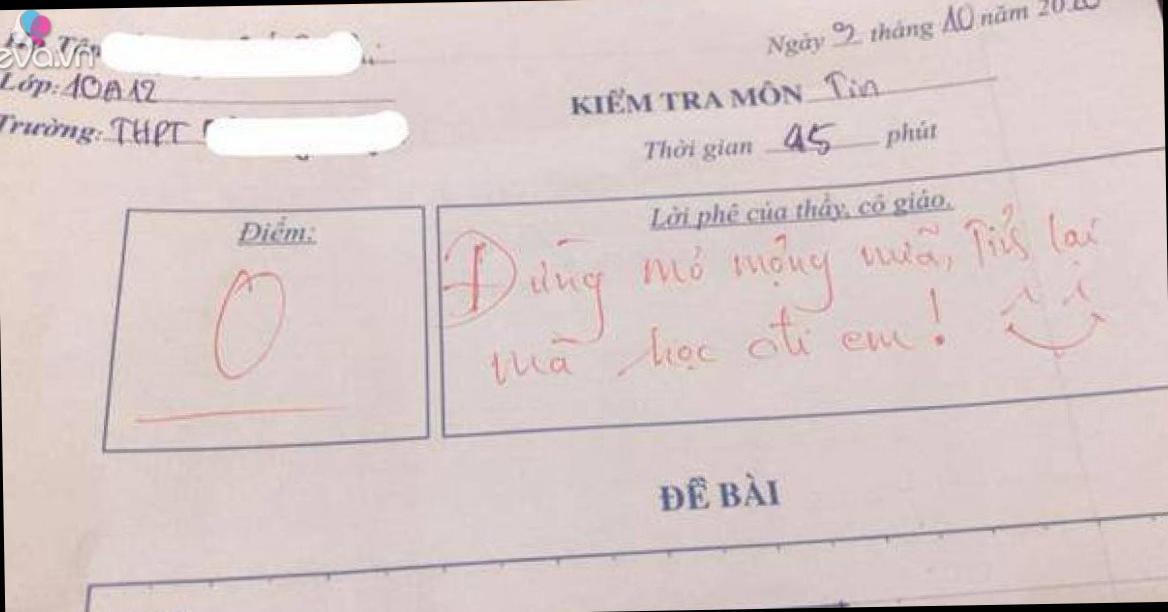 eva.vn
Tên
Lớp: 10A12
Trường: THPT
Ngày 9 tháng 10 năm 2020
KIỂM TRA MÔN Tin
Thời gian 45 phút
Điểm:
0
Lời phê của thầy, cô giáo.
Đừng mơ mộng nữa, Tỉnh lại
mà học đi em!
ĐỀ BÀI